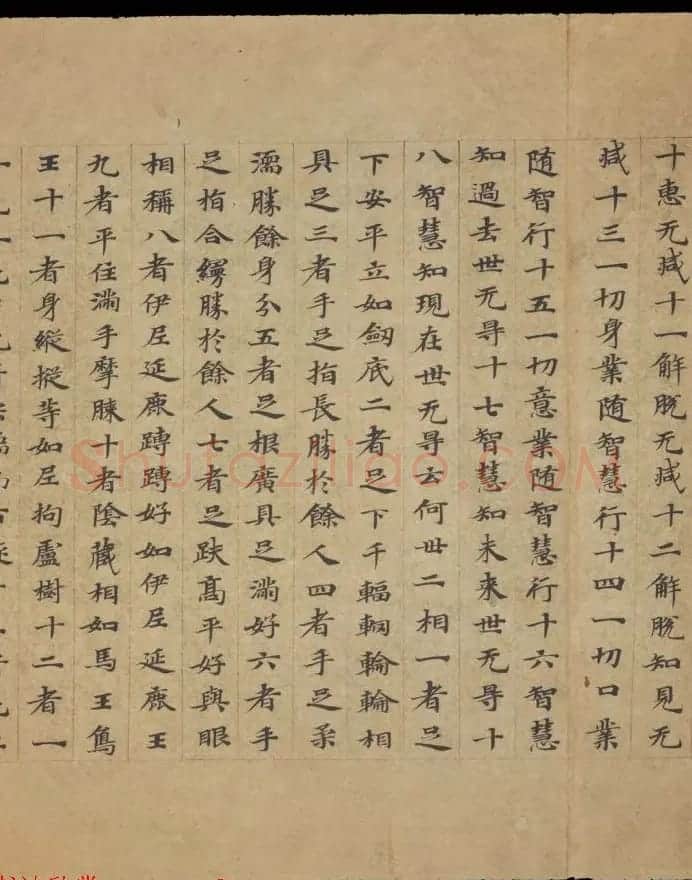 十惠无减十一解脫无减十二解脫知見无
减十三一切身業随智慧行十四一切口業
随智行十五一切意業随智慧行十六智慧
知過去世无㝵十七智慧知未来世无㝵十
八智慧知現在世无㝵云何丗二相一者足
下安平立如劒底二者足下千輻輞輪輪相
具足三者手足指長勝於餘人四者手足柔
濡勝餘身分五者足根廣具足满好六者手
足指合縵勝於餘人七者足趺髙平好與眼
相稱八者伊尼延鹿蹲蹲好如伊尼延鹿王
九者平住满手摩膝十者陰藏相如馬王鳥
王十一者身縱摐等如尼拘盧樹十二者一
Shufaziliao.COM